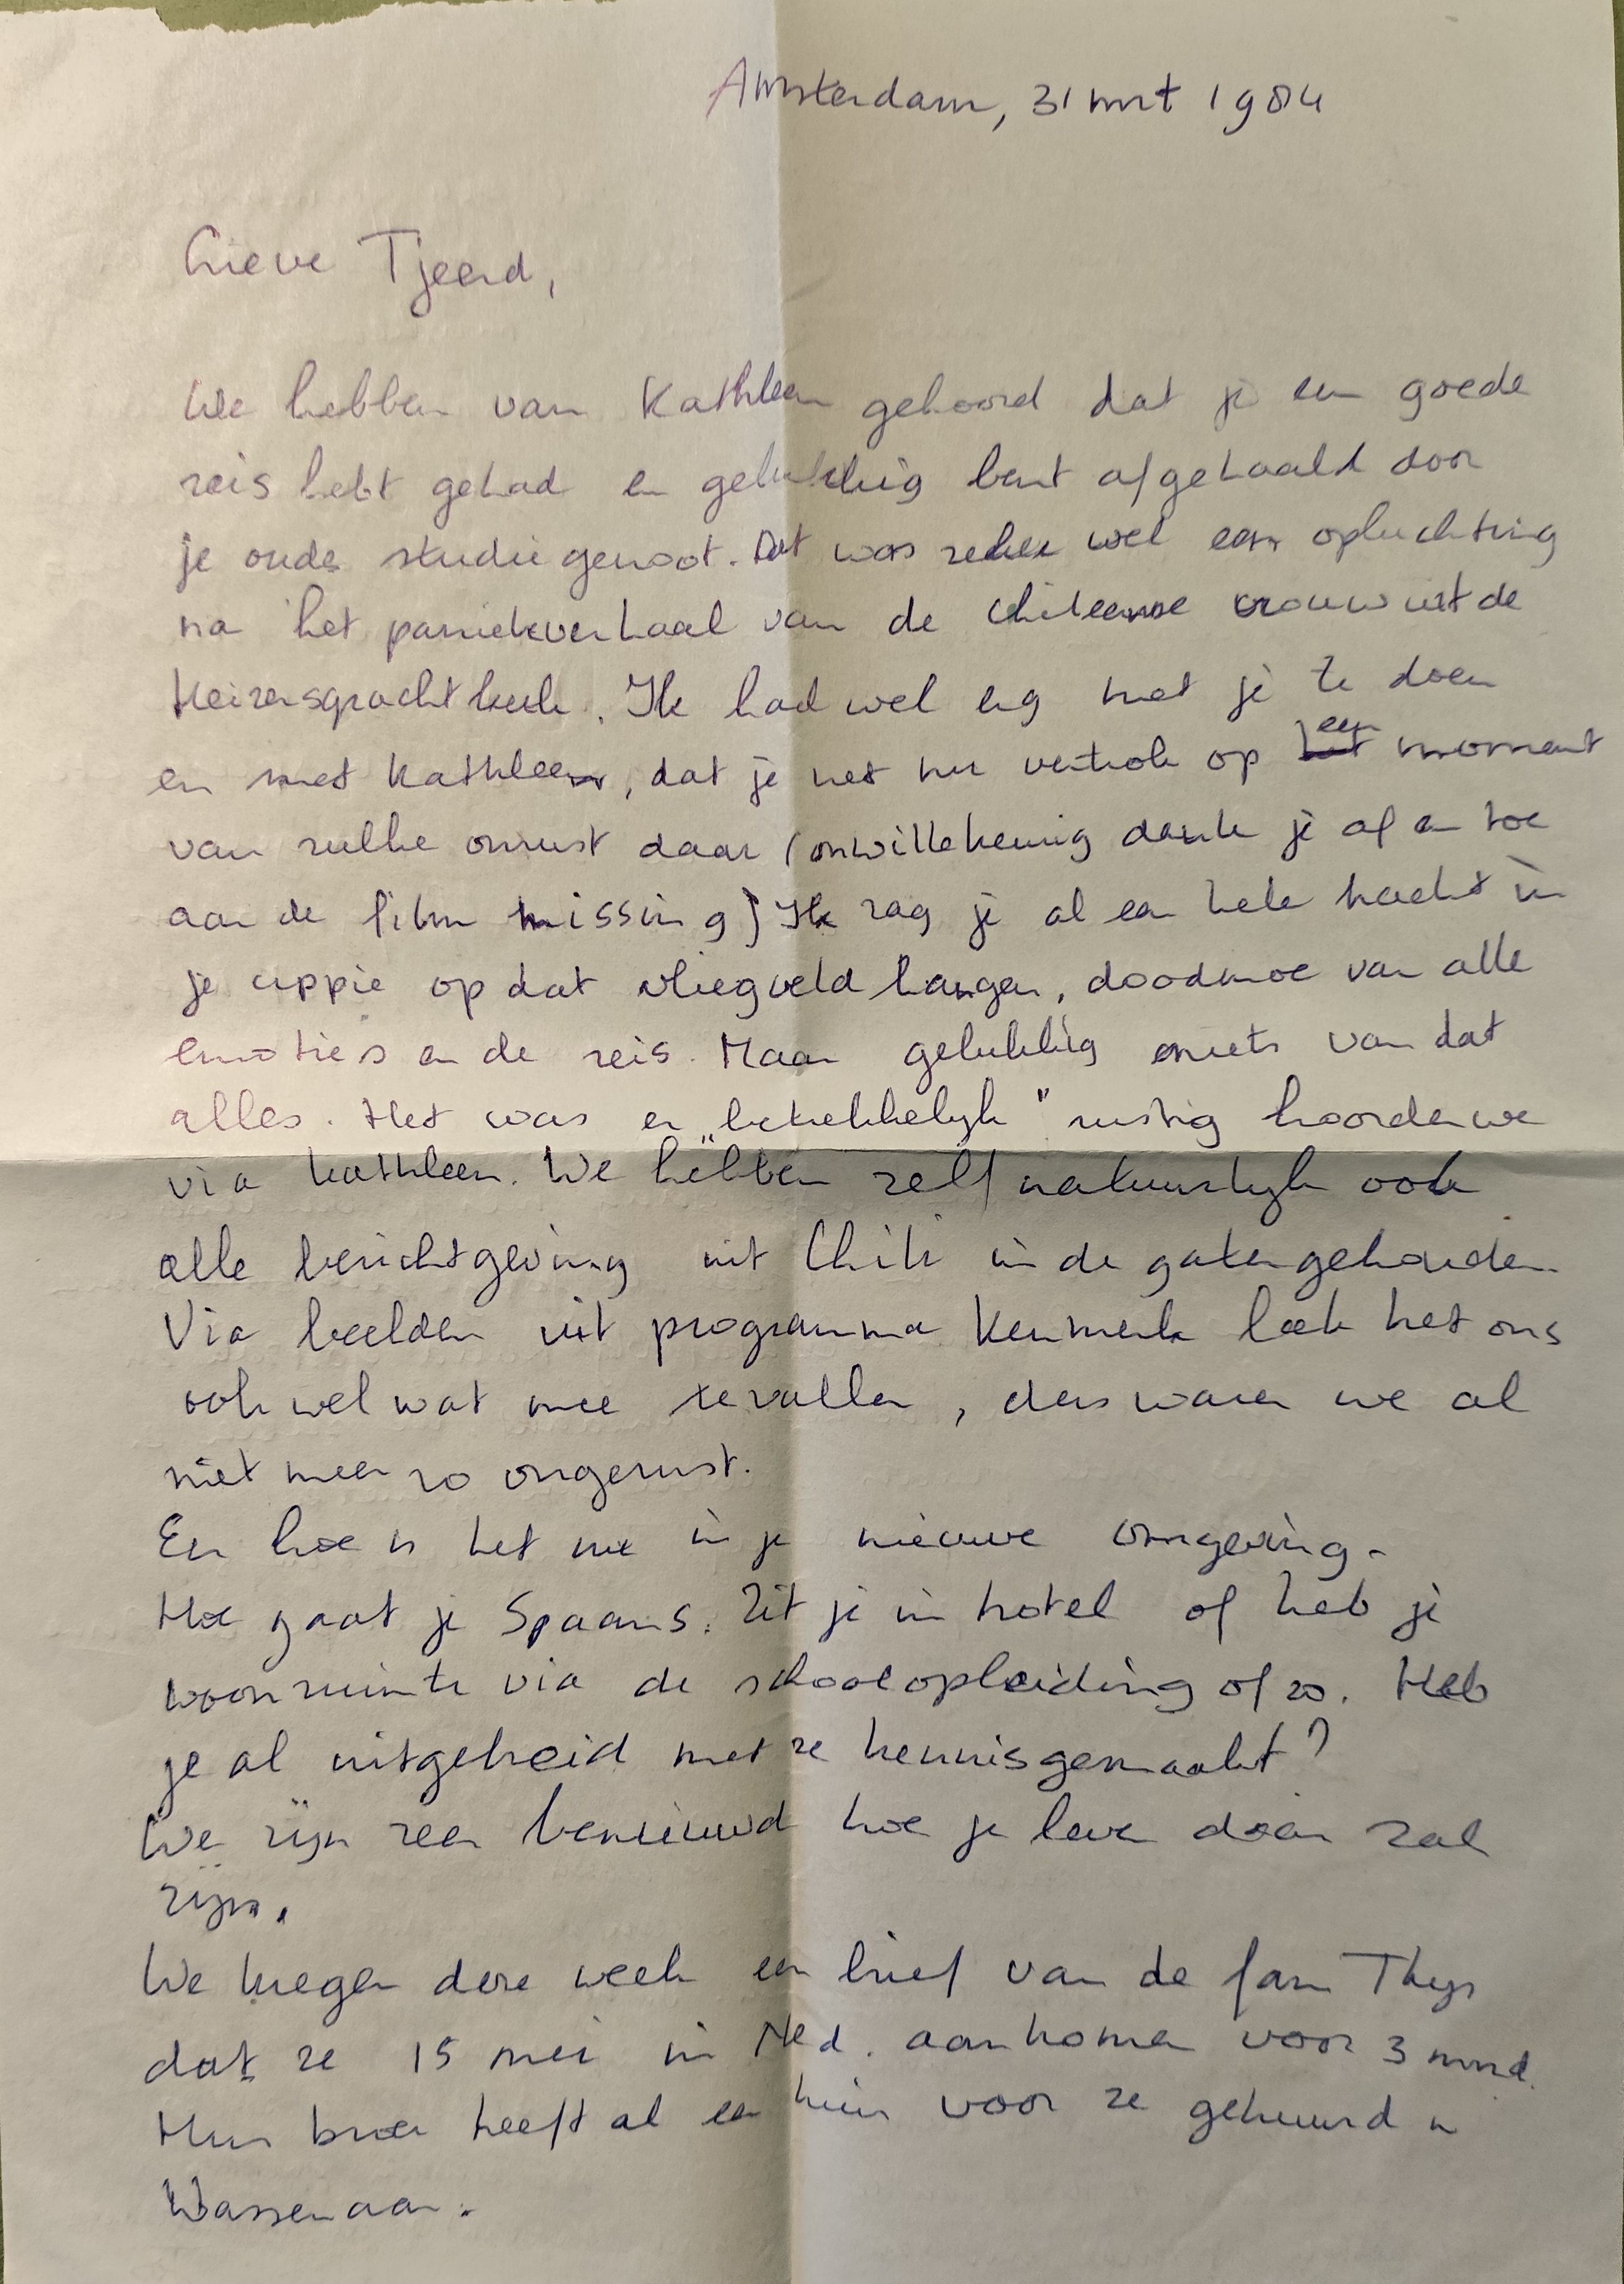 Amsterdam, 31 mrt 1984
Lieve Tjeerd,
We hebben van Kathleen gehoord dat je een goede
reis hebt gehad en gelukkig bent afgehaald door
je oude studiegenoot. Dat was zeker wel een opluchting
na het paniekverhaal van de Chileense vrouw uit de
Keizersgrachtkerk. Ik had wel erg met je te doen
en met Kathleen, dat je net nu vertrok op een moment
van zulke onrust daar (onwillekeurig denk je af en toe
aan de film missing) Ik zag je al een hele nacht in
je uppie op dat vliegveld hangen, doodmoe van alle
emoties en de reis. Maar gelukkig niets van dat
alles. Het was er „betrekkelijk" rustig hoorden we
via Kathleen. We hebben zelf natuurlijk ook
alle berichtgeving uit Chili in de gaten gehouden.
Via beelden uit programma Kenmerk leek het ons
ook wel wat mee te vallen, dus waren we al
niet meer zo ongerust.
En hoe is het nu in je nieuwe omgeving.
Hoe gaat je Spaans. Zit je in hotel of heb je
woonruimte via de schoolopleiding of zo. Heb
je al uitgebreid met ze kennisgemaakt?
We zijn zeer benieuwd hoe je leven daar zal
zijn.
We kregen deze week een brief van de fam Thijs
dat ze 15 mei in Ned. aankomen voor 3 mnd.
Hun broer heeft al een huis voor ze gehuurd in
Wassenaar.